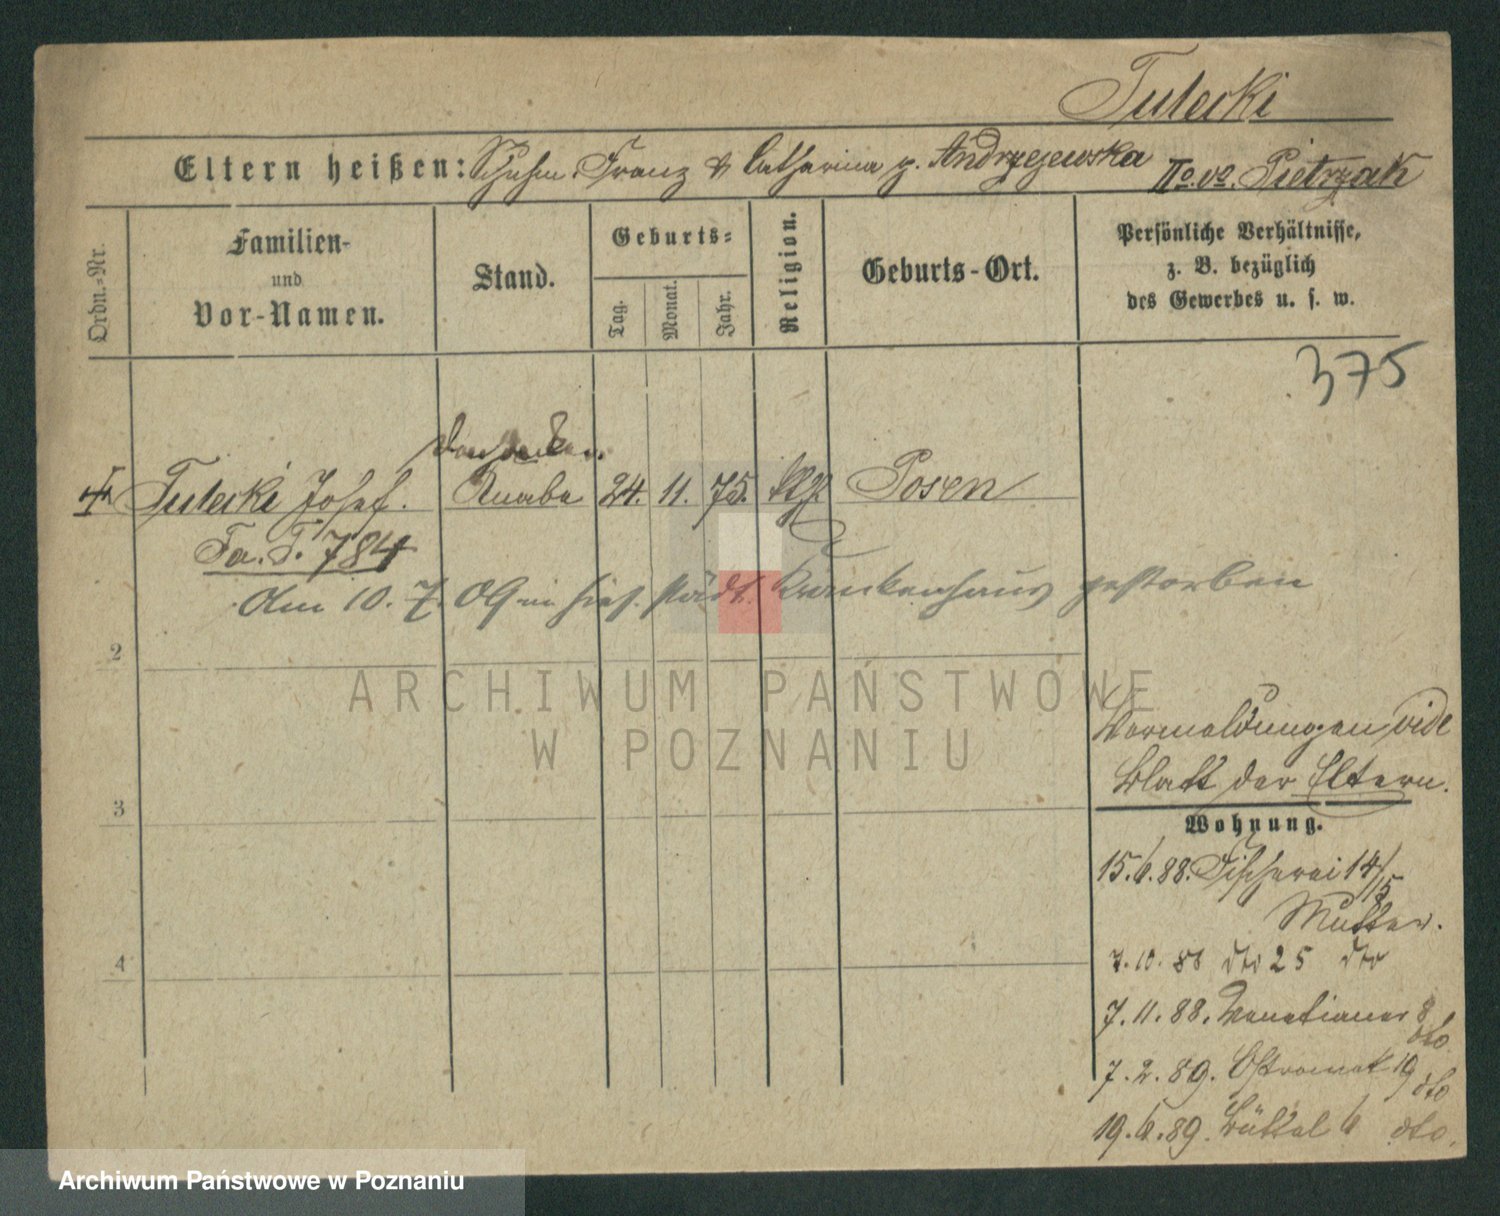 Tulecki
Eltern heißen: Schuhm. Franz & Catharina g. Andrzejewska IIo. vo. Pietrzak
Ordn.-Nr.
Familien-
und
Vor-Namen.
Stand.
Geburts-
Tag.
Monat.
Jahr.
Religion.
Geburts-Ort.
Persönliche Verhältnisse,
z. B. bezüglich
des Gewerbes u. s. w.
375
Tulecki Josef. Knabe 24. 11. 75. ktl. Posen
Fa. T. 784
Am 10. 7. 09 in hies. städt. Krankenhaus gestorben
2
ARCHIWUM PAŃSTWOWE
W POZNANIU
Vermeldungen vide
Blatt der Eltern.
3
Wohnung.
15.6.88. Fischerei 14/15
Mutter.
4
7.10.88 dto 25 dto
7.11.88. Venetianer 8 dto
7.2.89. Ostrowek 19 dto
19.6.89. Büttel 6 dto.
Archiwum Państwowe w Poznaniu